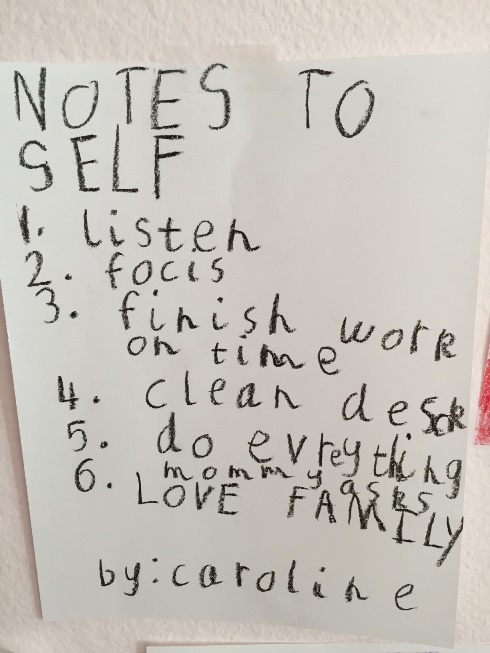 NOTES TO
SELF
1. listen
2. focis
3. finish work
on time
4. clean desk
5. do evreything
mommy asks
6. LOVE FAMILY
by:caroline